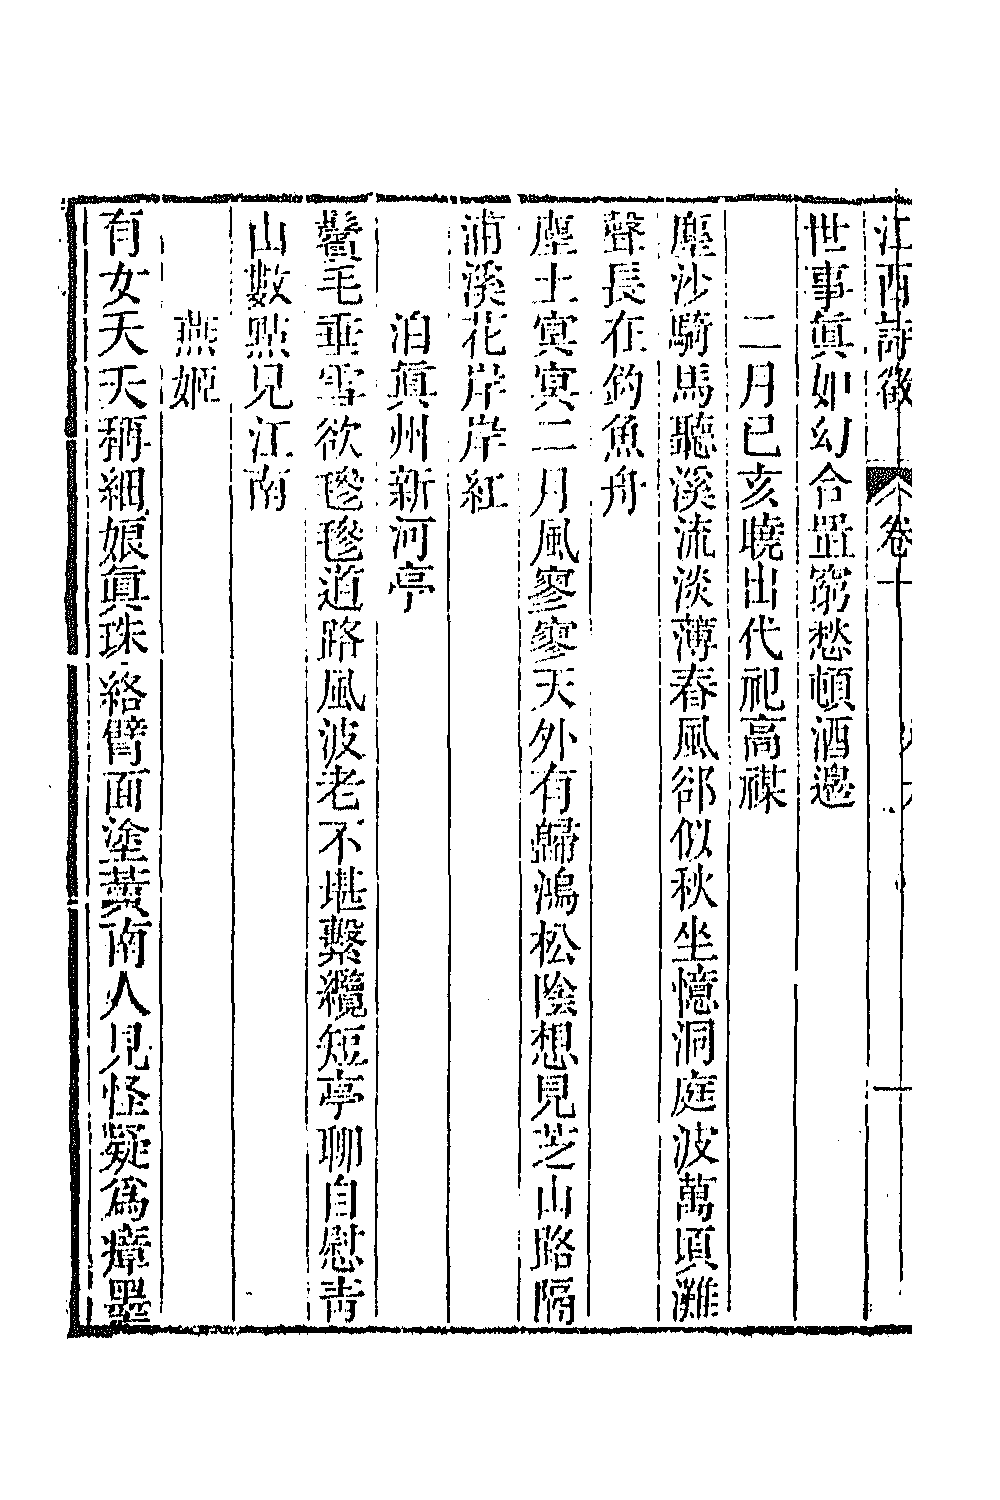 江西詩徵 卷十
世事眞如幻合置窮愁頓酒邊
二月已亥曉出代祀高禖
塵沙騎馬聽溪流淡薄春風郤似秋坐憶洞庭波萬頃灘
聲長在釣魚舟
塵土冥冥二月風寥寥天外有歸鴻松陰想見芝山路隔
浦溪花岸岸紅
泊眞州新河亭
鬢毛垂雪欲毿毿道路風波老不堪繫纜短亭聊自慰靑
山數點見江南
燕姬
有女夭夭稱細娘眞珠絡臂面塗黃南人見怪疑爲瘴墨